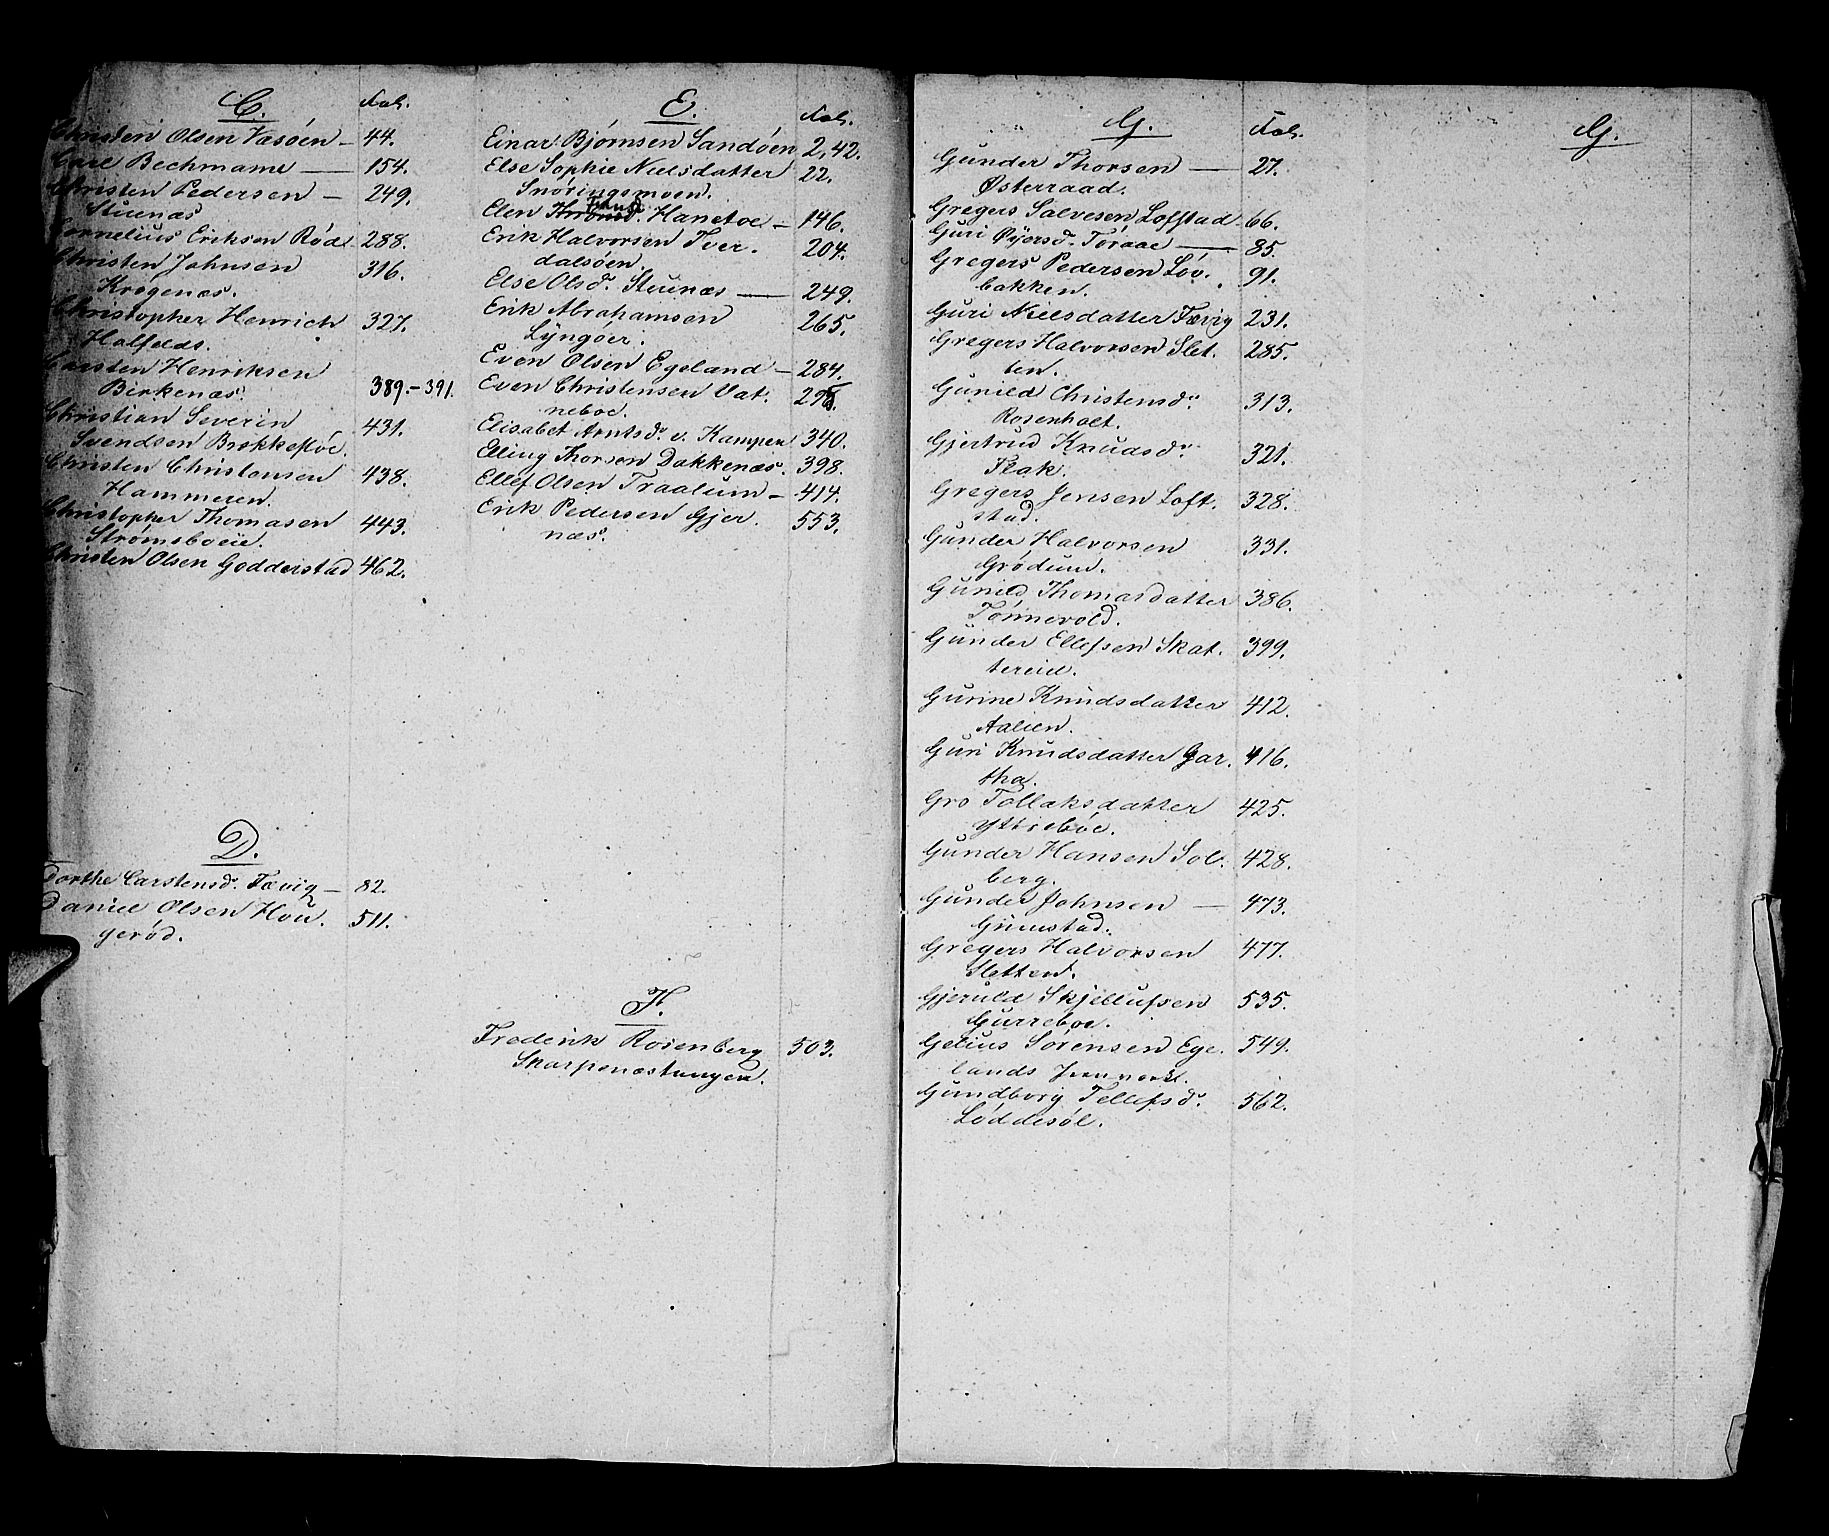 C. Fol.
Christen Olsen Vasöen – 44.
Carl Bechmann — 154.
Christen Pedersen – 249.
Stuenæs
Cornelius Eriksen Röd 288.
Christen Johnsen 316.
Krögenæs.
Christopher Henrich 327.
Halfelds.
Carsten Henriksen
Birkenæs. 389.–391.
Christian Severin 431.
Svendsen Brekkestöe.
Christen Christensen 438.
Hammeren.
Christopher Thomasen 443.
Strömsboeie.
Christen Olsen Godderstad 462.
D.
Dorthe Carstensd. Fævig – 82.
Daniel Olsen Hou. 511.
geröd.
E. Fol.
Einar Bjørnsen Sandöen 2, 42.
Else Sophie Nielsdatter 22.
Snöringsmoen.
Elen Knud Hanetoe – 146.
Erik Halvorsen Tver. 204.
dalsöen.
Else Olsd. Stuenæs — 249.
Erik Abrahamsen 265.
Lyngöer.
Even Olsen Egeland – 284.
Even Christensen Vat.
neboe.
Elisabet Arntsd. v. Kampen 340.
Elling Thorsen Dakkenæs. 398.
Ellef Olsen Traalum – 414.
Erik Pedersen Gjer. 553.
næs.
F.
Frederik Rosenberg 503.
Skarpenæstangen.
G. Fol.
Gunder Thorsen — 27.
Østerraad.
Gregers Salvesen Lofstad 66.
Guri Øyersd. Toraae — 85.
Gregers Pedersen Löv. 91.
bakken.
Guri Nielsdatter Fævig 231.
Gregers Halvorsen Slet. 285.
ten.
Gunild Christensd. 313.
Rosenholt.
Gjertrud Knudsd. 321.
Flak.
Gregers Jensen Loft. 328.
stad.
Gunder Halvorsen 331.
Grödum.
Gunild Thomasdatter 386.
Tönnevold.
Gunder Ellefsen Skat. 399.
tereid.
Gurine Knudsdatter 412.
Aalien.
Guri Knudsdatter Gar. 416.
tha.
Gro Tollaksdatter 425.
Yttreböe.
Gunder Hansen Sol. 428.
berg.
Gunder Johnsen — 473.
Grimstad.
Gregers Halvorsen 477.
Sletten.
Gjeruld Skjellufsen 535.
Gurreboe.
Gelius Sörensen Ege. 549.
lands Jernverk.
Gundborg Tellefsd. 562.
Löddesöl.
G.